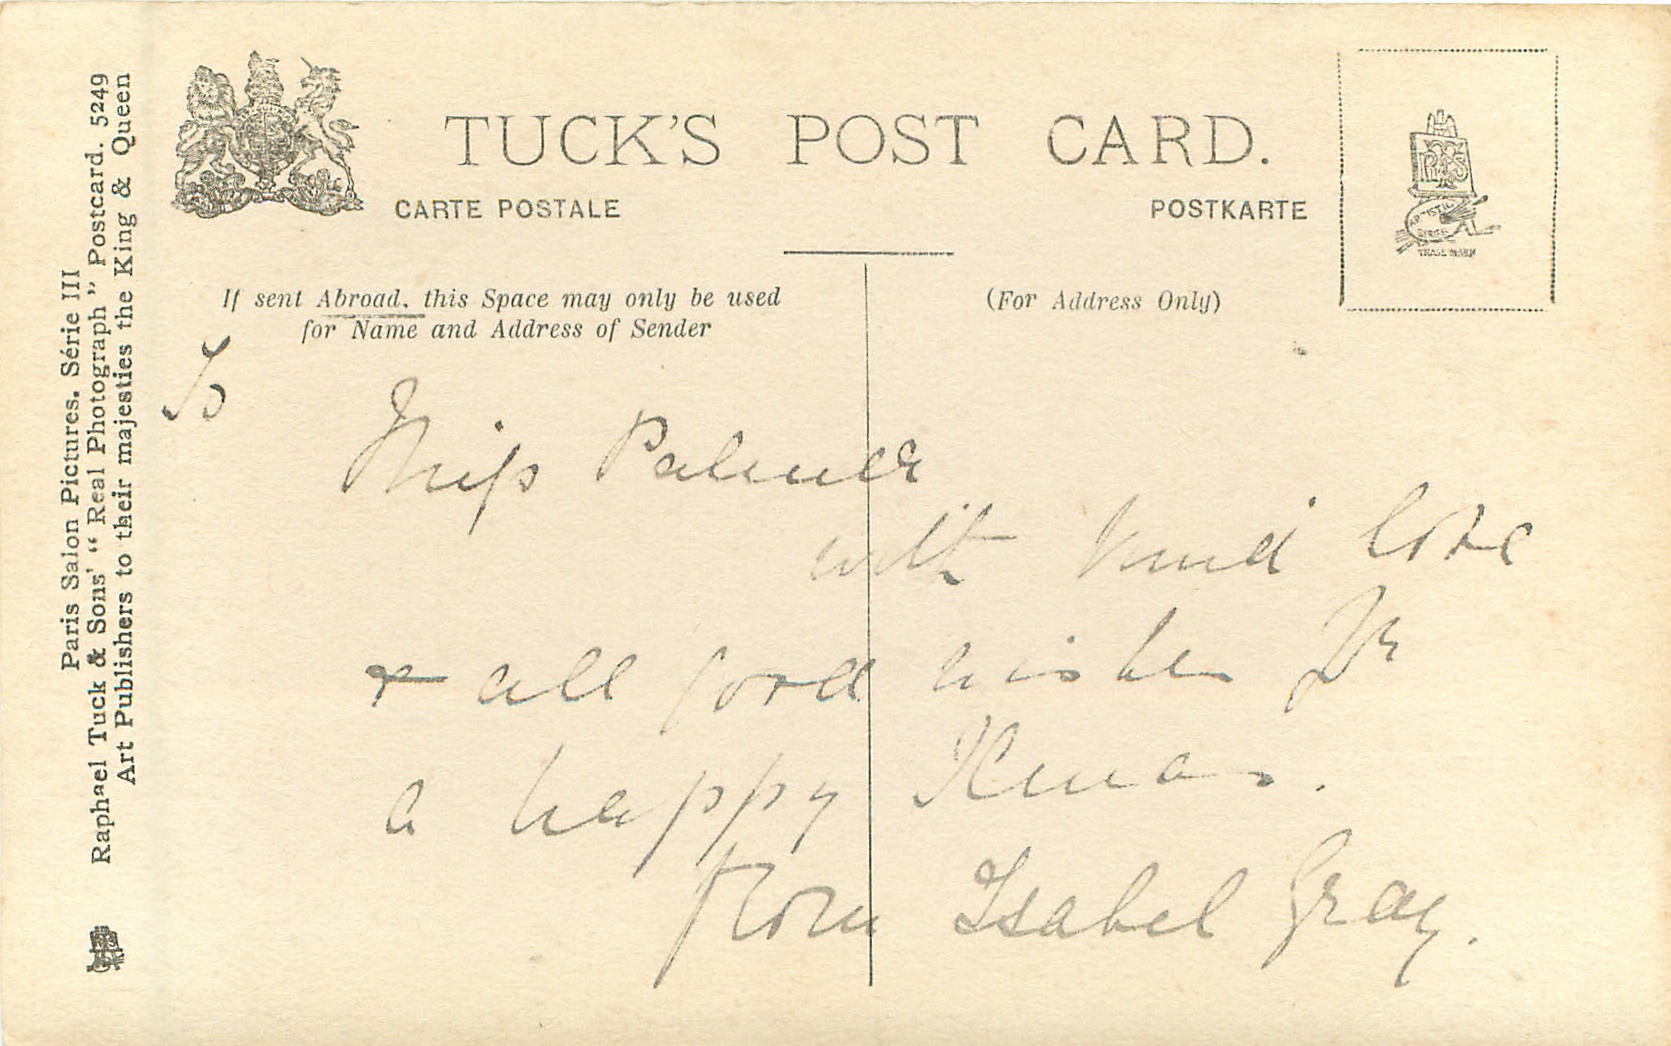 TUCK'S POST CARD.
CARTE POSTALE POSTKARTE
If sent Abroad, this Space may only be used
for Name and Address of Sender
(For Address Only)
To
Miss Palmer
with kind love
& all good wishes for
a happy Xmas.
from Isabel Gray.
Paris Salon Pictures. Série III
Raphael Tuck & Sons' “Real Photograph” Postcard. 5249
Art Publishers to their majesties the King & Queen
TRADE MARK